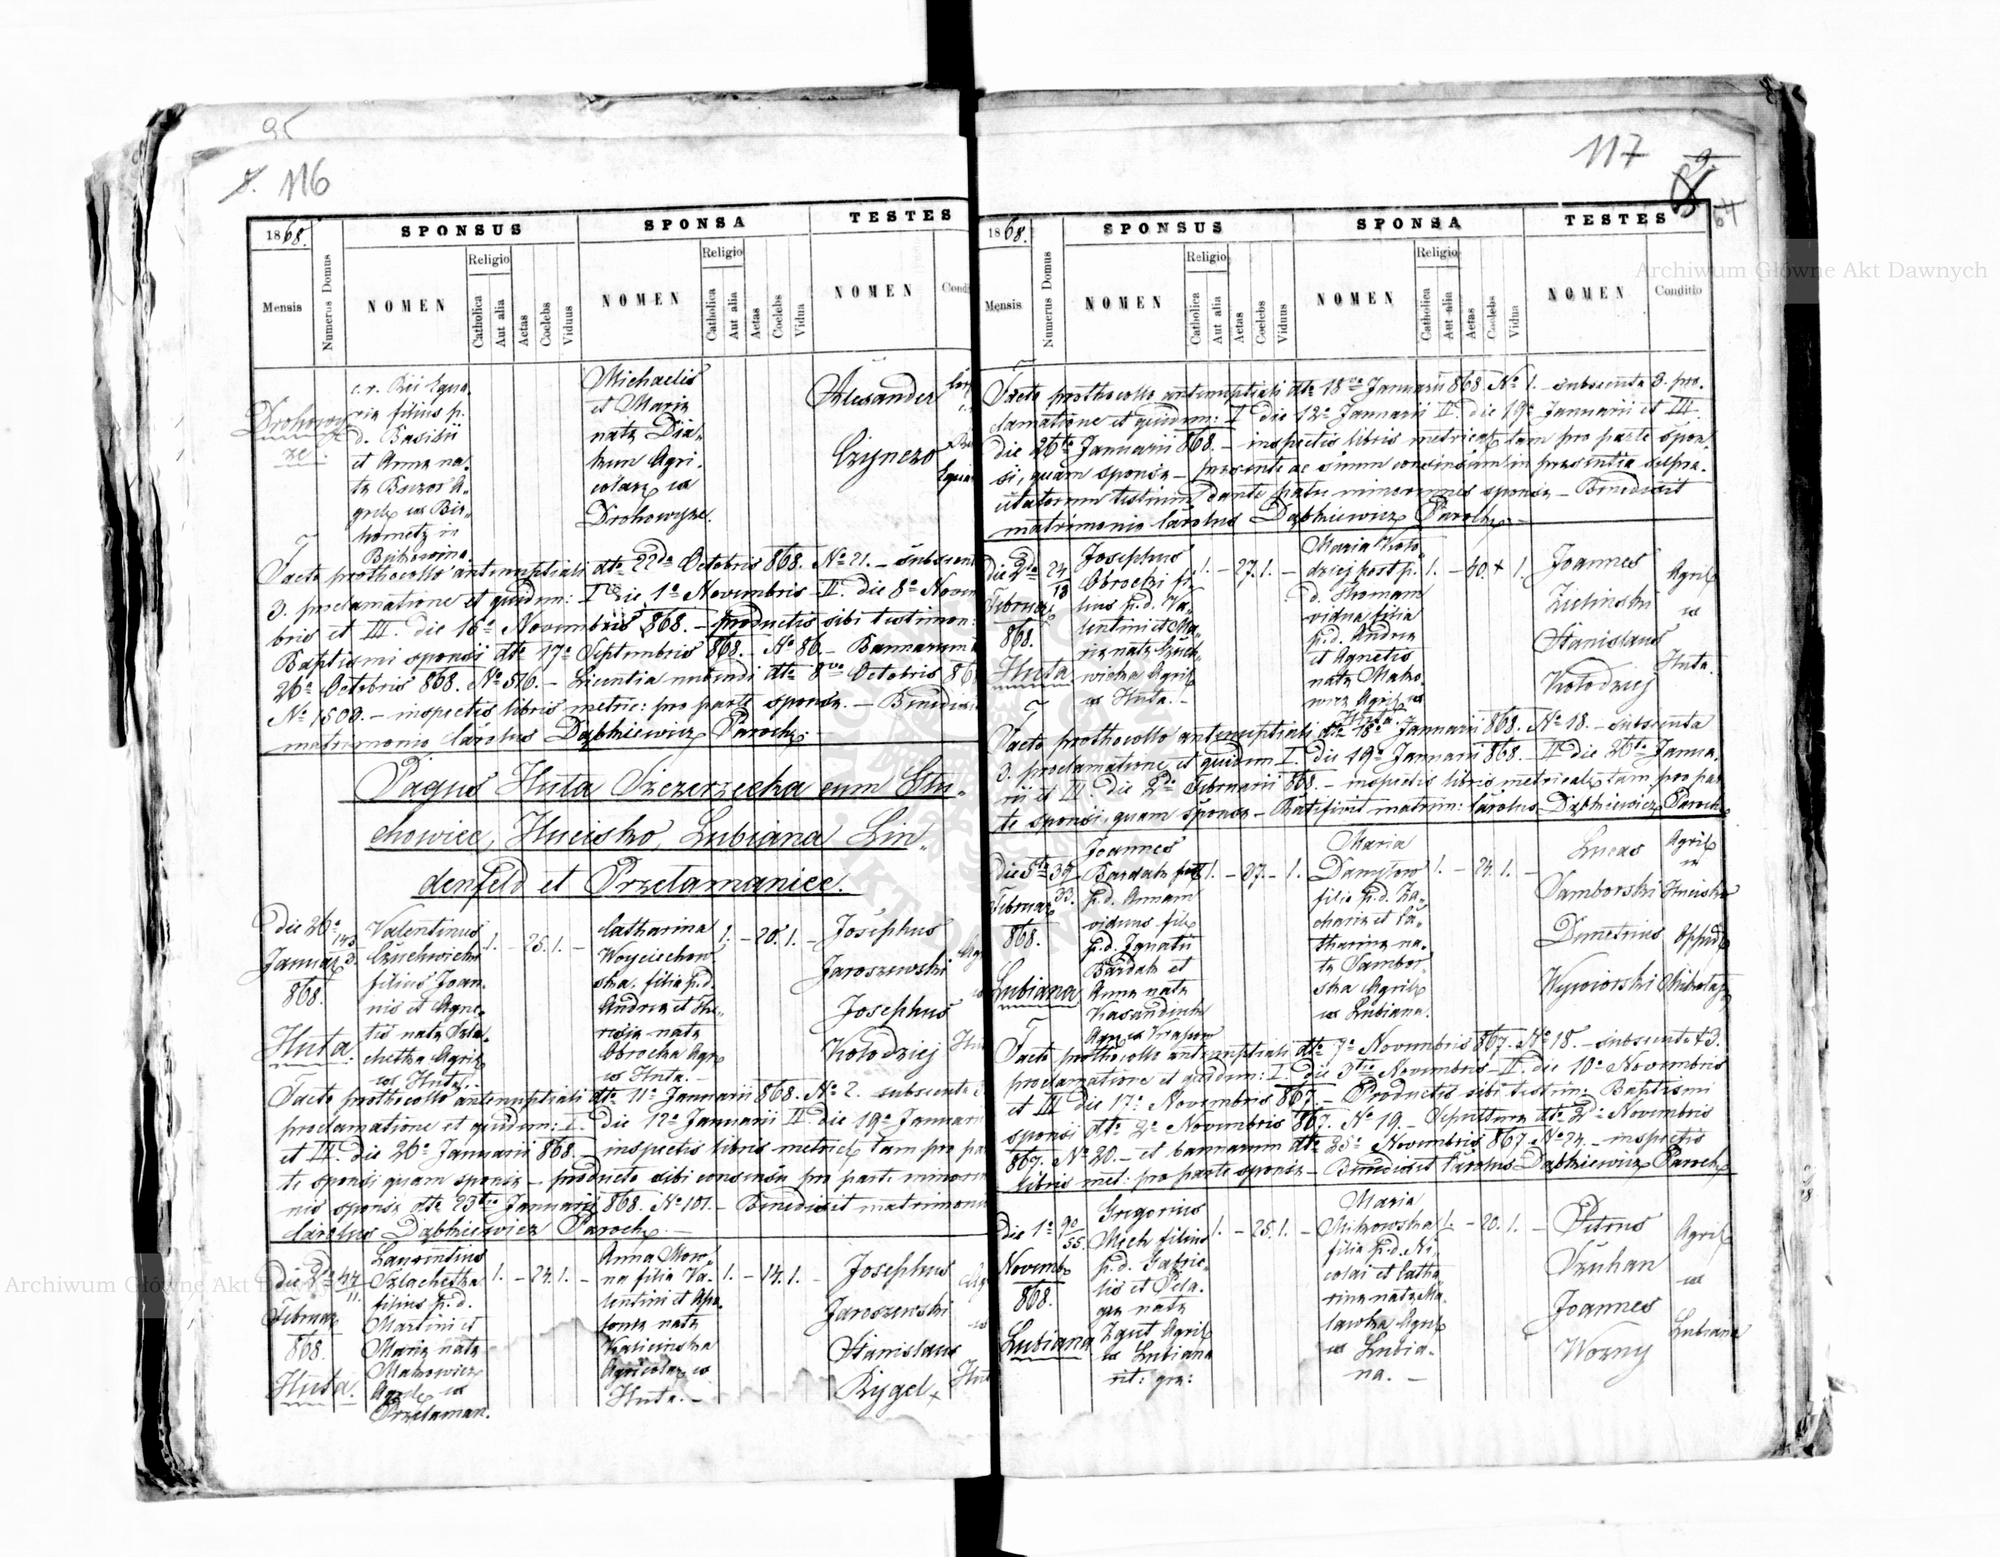 95
116
1868.
SPONSUS
SPONSA
TESTES
Mensis
Numerus Domus
NOMEN
Religio
Catholica
Aut alia
Aetas
Coelebs
Viduus
NOMEN
Religio
Catholica
Aut alia
Aetas
Coelebs
Vidua
NOMEN
Drohowy
że
filius p.
d. Basilii
et Annæ na
tæ
in
Bukowina
Michaelis
et Mariæ
natæ Dia
kun Agri
colarȝ ex
Drohowyże.
Alexander
Czyniczo
Facto prothocollo antenuptiali dto 22da Octobris 868. No 21. – subsecuta
3. proclamatione et quidem: I die 1a Novembris – II. die 8a Novem
bris et III. die 16a Novembris 868. – productis sibi testimon:
Baptismi sponsi dto 17a Septembris 868. No 86. – Bannorum
26a Octobris 868. No 576. – Licentia nubendi dto 8va Octobris 86
No 1503. – inspectis libris metric: pro parte sponsæ. – Benedixit
matrimonio Carolus Dąbkiewicz Paroch.
Pagus Huta Szczerzecka cum Stu-
chowice, Hucisko, Lubiana Lin-
denfeld et Przełamanice.
Die 26a
Januar
868.
Huta.
Valentinus
Czuchwicki
filius Joan
nis et Agne
tis natæ Szla
chetka Agric
ex Huta. –
1. – 25. 1. –
Catharina
Woyciechow
ska, filia p.d.
Andreæ et The
resiæ natæ
Obrocka Agr
ex Huta. –
1. – 20. 1. –
Josephus
Jaroszewski
Josephus
Kołodziej
Facto prothocollo antenuptiali dto 11a Januarii 868. No 2. subsecuta 3.
proclamatione et quidem: I. die 12a Januarii II die 19a Januarii
et III. die 26a Januarii 868. – inspectis libris metric tam pro par
te sponsi quam sponsæ – producto sibi consensu pro parte minoren
nis sponsæ dto 23tia Januarii 868. No 101. – Benedixit matrimonio
Carolus Dąbkiewicz Paroch. –
Die 2da
Februar
868.
Huta.
44
11.
Laurentius
Szlachetka
filius p.d.
Martini et
Mariæ natæ
Makowicz
Agric ex
Przełaman.
1. – 24. 1. –
Anna Mow
na filia Va
lentini et Apo
loniæ natæ
Kalicinska
Agricolarȝ ex
Huta. –
1. – 14. 1. –
Josephus
Jaroszewski
Stanislaus
Rygel
117
9.
64
1868.
SPONSUS
SPONSA
TESTES
Mensis
Numerus Domus
NOMEN
Religio
Catholica
Aut alia
Aetas
Coelebs
Viduus
NOMEN
Religio
Catholica
Aut alia
Aetas
Coelebs
Vidua
NOMEN
Conditio
Facto prothocollo antenuptiali dto 18va Januarii 868 No 1. – subsecuta 3. pro-
clamatione et quidem: I die 12a Januarii II. die 19a Januarii et III
die 26ta Januarii 868. – inspectis libris metrical tam pro parte spon
si, quam sponsæ – præsente ac suum consensum in præsentia
testium dante patre minorennis sponsæ – Benedixit
matrimonio Carolus Dąbkiewicz Paroch. –
Die 2da
Februar
868.
Huta
24
13
Josephus
Obrocki fi
lius p.d. Va
lentini et Ma
riæ natæ Czuch
wicka Agric
ex Huta. –
1. – 27. 1. –
Maria Koło
dziej post p.
d. Thomam
vidua filia
p.d. Andreæ
et Agnetis
natæ Mako
wicz Agric ex
Huta. –
1. – 40. + 1.
Joannes
Zielinski
Stanislaus
Kołodziej
Agric
ex
Huta.
Facto prothocollo antenuptiali dto 18a Januarii 868. No 18. – subsecuta
3. proclamatione et quidem I. die 19a Januarii 868. II die 26ta Janua
rii et III die 2da Februarii 868. – inspectis libris metrical tam pro par
te sponsi, quam sponsæ – Ratificavit matrim: Carolus Dąbkiewicz Paroch.
Die 5ta
Februar
868.
Lubiana
39
33.
Joannes
Bardak post
p.d. Annam
viduus fil
p.d. Ignatii
Bardak et
Annæ natæ
Kasandiuk
1. – 27. – 1.
Maria
Danyłow
filia p.d. Za
chariæ et Ca
tharinæ na
tæ Sambor
ska Agric
ex Lubiana.
1. – 24. 1. –
Lucas
Samborski
Demetrius
Wywiorski
Agric
ex
Huciska
Oppid
Mikołaj
Facto prothocollo antenuptiali dto 7a Novembris 867. No 18. – subsecuta 3.
proclamatione et quidem: I. die 3tia Novembris – II. die 10a Novembris
et III die 17a Novembris 867. – Productis sibi testim: Baptismi
sponsi dto 2a Novembris 867. No 19. – Sepulturæ dto 2da Novembris
867. No 20. – et bannorum dto 25a Novembris 867 No 74. – inspectis
libris met: pro parte sponsæ – Benedixit Carolus Dąbkiewicz Paroch
Die 1a
Novemb
868.
Lubiana
90
55.
Gregorius
Mech filius
p.d. Gabrie
lis et Pela
giæ natæ
Zaut Agric
ex Lubiana
rit: gra:
1. – 25. 1. –
Maria
Mikowska
filia p.d. Ni
colai et Catha
rinæ natæ Ma
lawka Agric
ex Lubia
na. –
1. – 20. 1. –
Petrus
Szuhan
Joannes
Wozny
Agric
ex
Lubiana
Archiwum Główne Akt Dawnych
Archiwum Główne Akt Dawnych